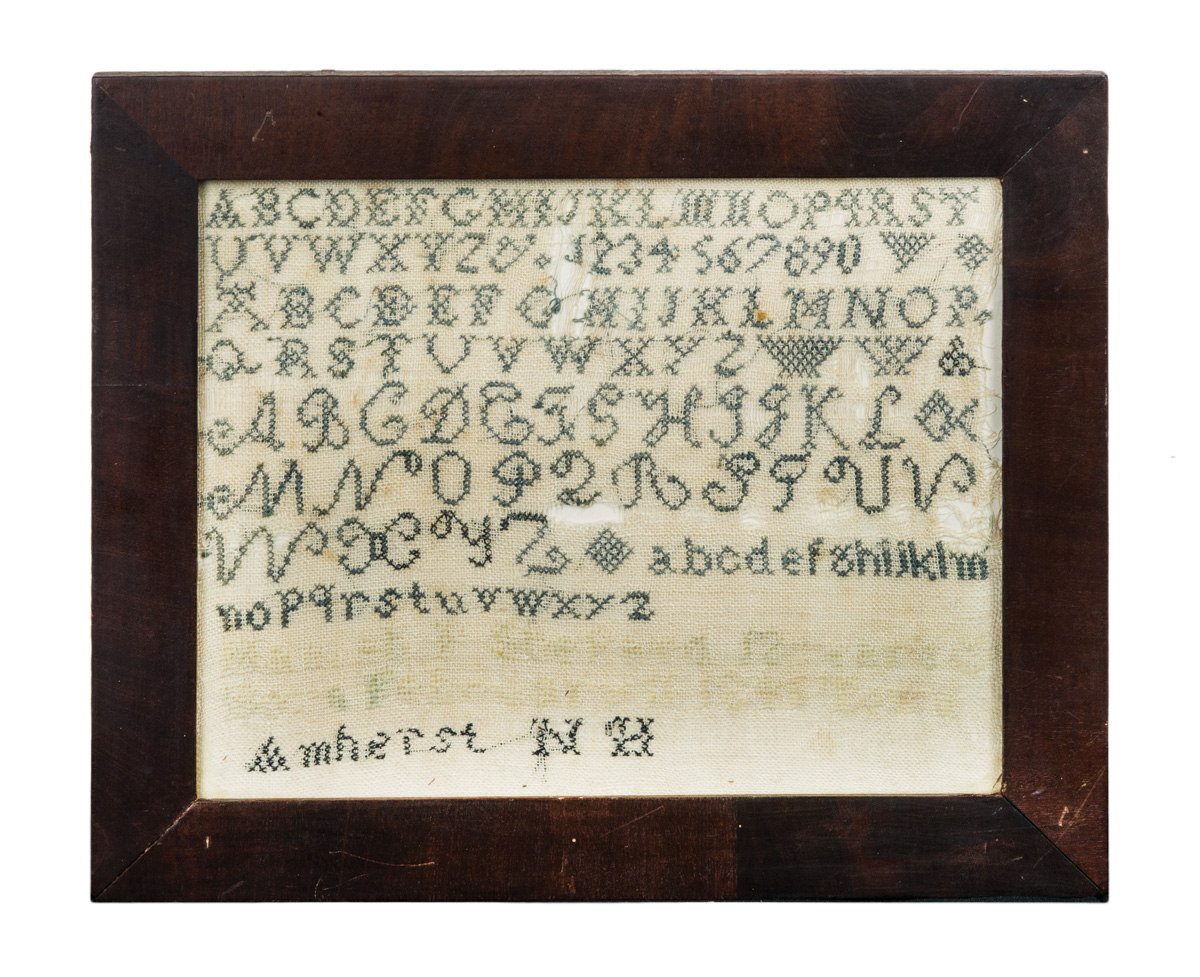 A B C D E F G H I J K L M N O P Q R S T
U V W X Y Z & . 1 2 3 4 5 6 7 8 9 0
A B C D E F G H I J K L M N O P
Q R S T U V W X Y Z
A B C D E F G H I J K L
M N O P Q R S T U V
W X Y Z a b c d e f g h i j k l m
n o p q r s t u v w x y z
Amherst N H